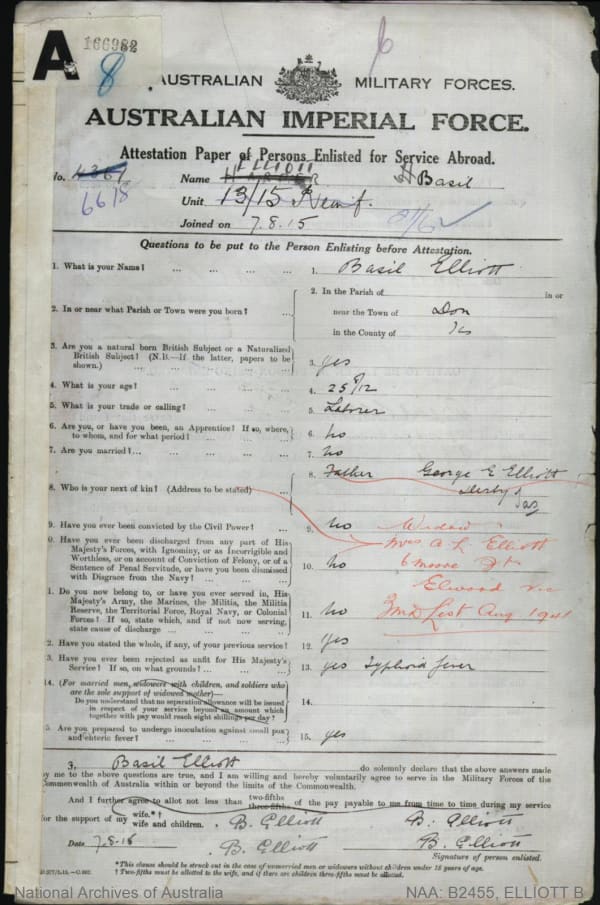 A 166982
8
AUSTRALIAN MILITARY FORCES.
AUSTRALIAN IMPERIAL FORCE.
Attestation Paper of Persons Enlisted for Service Abroad.
No. 4367 Name ELLIOTT Basil
6618
Unit 13/15 Reinf.
Joined on 7.8.15
Questions to be put to the Person Enlisting before Attestation.
1. What is your Name? ... ... ... ... 1. Basil Elliott
2. In or near what Parish or Town were you born? ... 2. In the Parish of in or
near the Town of Don
in the County of Tas
3. Are you a natural born British Subject or a Naturalized
British Subject? (N.B.—If the latter, papers to be
shown.) ... ... ... 3. yes
4. What is your age? ... ... ... ... 4. 25 8/12
5. What is your trade or calling? ... ... ... 5. Laborer
6. Are you, or have you been, an Apprentice? If so, where,
to whom, and for what period? ... ... 6. no
7. Are you married?... ... ... ... 7. no
8. Who is your next of kin? (Address to be stated) 8. Father George E Elliott
Derby
Tas
9. Have you ever been convicted by the Civil Power? ... 9. no Widow
Mrs A L Elliott
0. Have you ever been discharged from any part of His
Majesty's Forces, with Ignominy, or as Incorrigible and
Worthless, or on account of Conviction of Felony, or of a
Sentence of Penal Servitude, or have you been dismissed
with Disgrace from the Navy? ... ... 10. no 6 Moore St
Elwood Vic
1. Do you now belong to, or have you ever served in, His
Majesty's Army, the Marines, the Militia, the Militia
Reserve, the Territorial Force, Royal Navy, or Colonial
Forces? If so, state which, and if not now serving,
state cause of discharge ... ... ... 11. no List Aug 1941
2. Have you stated the whole, if any, of your previous service? 12. Yes
3. Have you ever been rejected as unfit for His Majesty's
Service? If so, on what grounds? ... ... 13. yes Typhoid fever
14. (For married men, widowers with children, and soldiers who
are the sole support of widowed mother)—
Do you understand that no separation allowance will be issued
in respect of your service beyond an amount which
together with pay would reach eight shillings per day? 14.
5. Are you prepared to undergo inoculation against small pox
and enteric fever? ... ... ... 15. yes
3, Basil Elliott do solemnly declare that the above answers made
by me to the above questions are true, and I am willing and hereby voluntarily agree to serve in the Military Forces of the
Commonwealth of Australia within or beyond the limits of the Commonwealth.
And I further agree to allot not less than two-fifths three-fifths of the pay payable to me from time to time during my service
for the support of my wife.*† wife and children. B. Elliott B. Elliott
Date 7.8.15 B. Elliott B. Elliott
Signature of person enlisted.
*This clause should be struck out in the case of unmarried men or widowers without children under 18 years of age.
† Two-fifths must be allotted to the wife, and if there are children three-fifths must be allotted.
National Archives of Australia NAA: B2455, ELLIOTT B